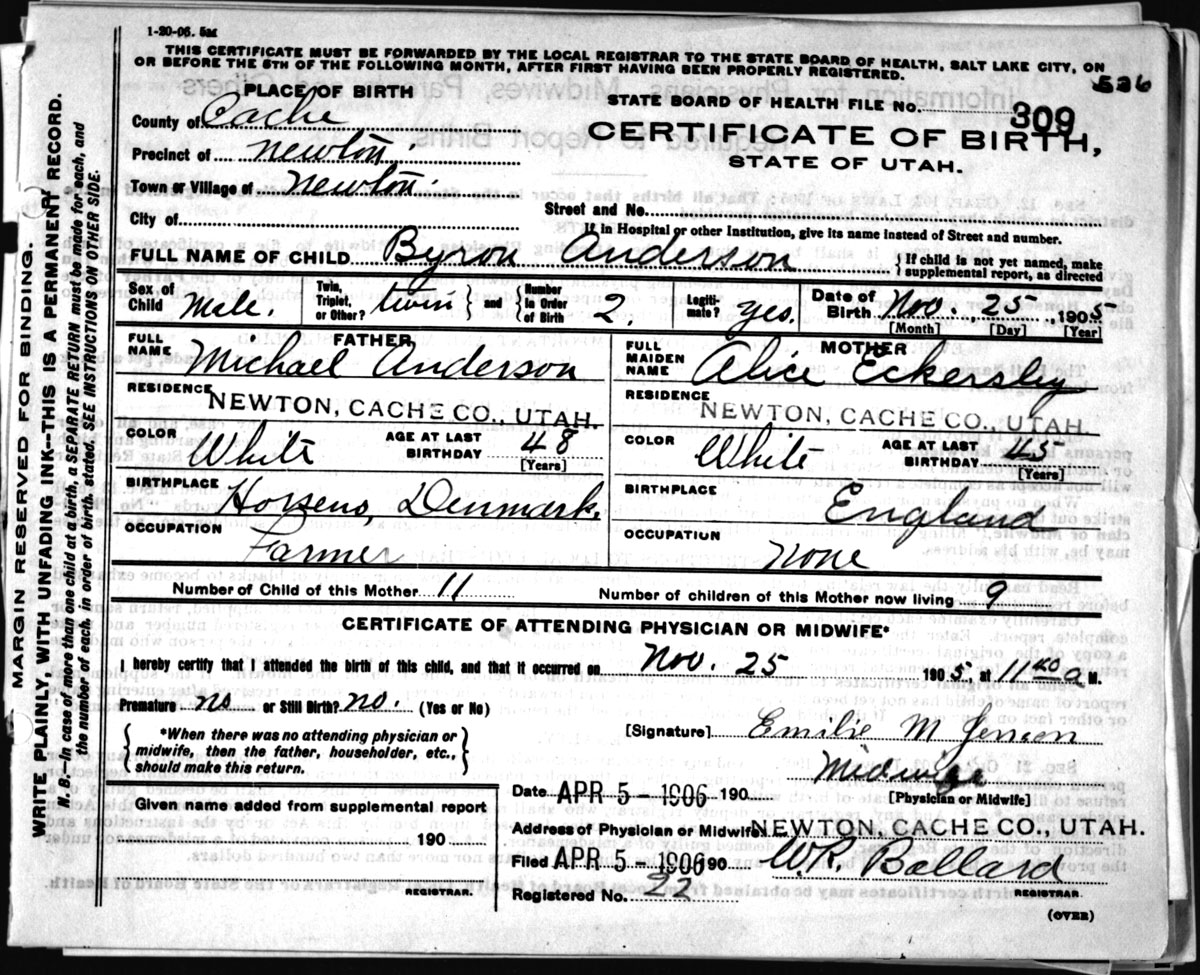 1-20-06. 5M
THIS CERTIFICATE MUST BE FORWARDED BY THE LOCAL REGISTRAR TO THE STATE BOARD OF HEALTH, SALT LAKE CITY, ON
OR BEFORE THE 5TH OF THE FOLLOWING MONTH, AFTER FIRST HAVING BEEN PROPERLY REGISTERED.
536
PLACE OF BIRTH
STATE BOARD OF HEALTH FILE No. 309
County of Cache
CERTIFICATE OF BIRTH,
STATE OF UTAH.
Precinct of Newton.
Town or Village of Newton.
City of
Street and No.
If in Hospital or other Institution, give its name instead of Street and number.
FULL NAME OF CHILD Byron Anderson
{ If child is not yet named, make
supplemental report, as directed
Sex of Child Male.
Twin, Triplet, or Other? twin } and { Number in Order of Birth 2.
Legitimate? yes.
Date of Birth Nov. 25, 1905
[Month] [Day] [Year]
FATHER
FULL NAME Michael Anderson
RESIDENCE
NEWTON, CACHE CO., UTAH.
COLOR White
AGE AT LAST BIRTHDAY 48
[Years]
BIRTHPLACE Horsens, Denmark.
OCCUPATION
Farmer
MOTHER
FULL MAIDEN NAME Alice Eckersley
RESIDENCE
NEWTON, CACHE CO., UTAH.
COLOR White
AGE AT LAST BIRTHDAY 45
[Years]
BIRTHPLACE
England
OCCUPATION
None
Number of Child of this Mother 11
Number of children of this Mother now living 9
CERTIFICATE OF ATTENDING PHYSICIAN OR MIDWIFE*
I hereby certify that I attended the birth of this child, and that it occurred on Nov. 25 1905, at 11 40 a M.
Premature no or Still Birth? no. (Yes or No)
{ *When there was no attending physician or
midwife, then the father, householder, etc.,
should make this return. }
[Signature] Emilie M Jenson
Midwife
[Physician or Midwife]
Given name added from supplemental report
190
REGISTRAR.
Date APR 5 - 1906 190
Address of Physician or Midwife NEWTON, CACHE CO., UTAH.
Filed APR 5 - 1906 190 W.R. Ballard
REGISTRAR.
Registered No. 22
(OVER)
MARGIN RESERVED FOR BINDING.
WRITE PLAINLY, WITH UNFADING INK--THIS IS A PERMANENT RECORD.
N. B.--In case of more than one child at a birth, a SEPARATE RETURN must be made for each, and
the number of each, in order of birth, stated. SEE INSTRUCTIONS ON OTHER SIDE.